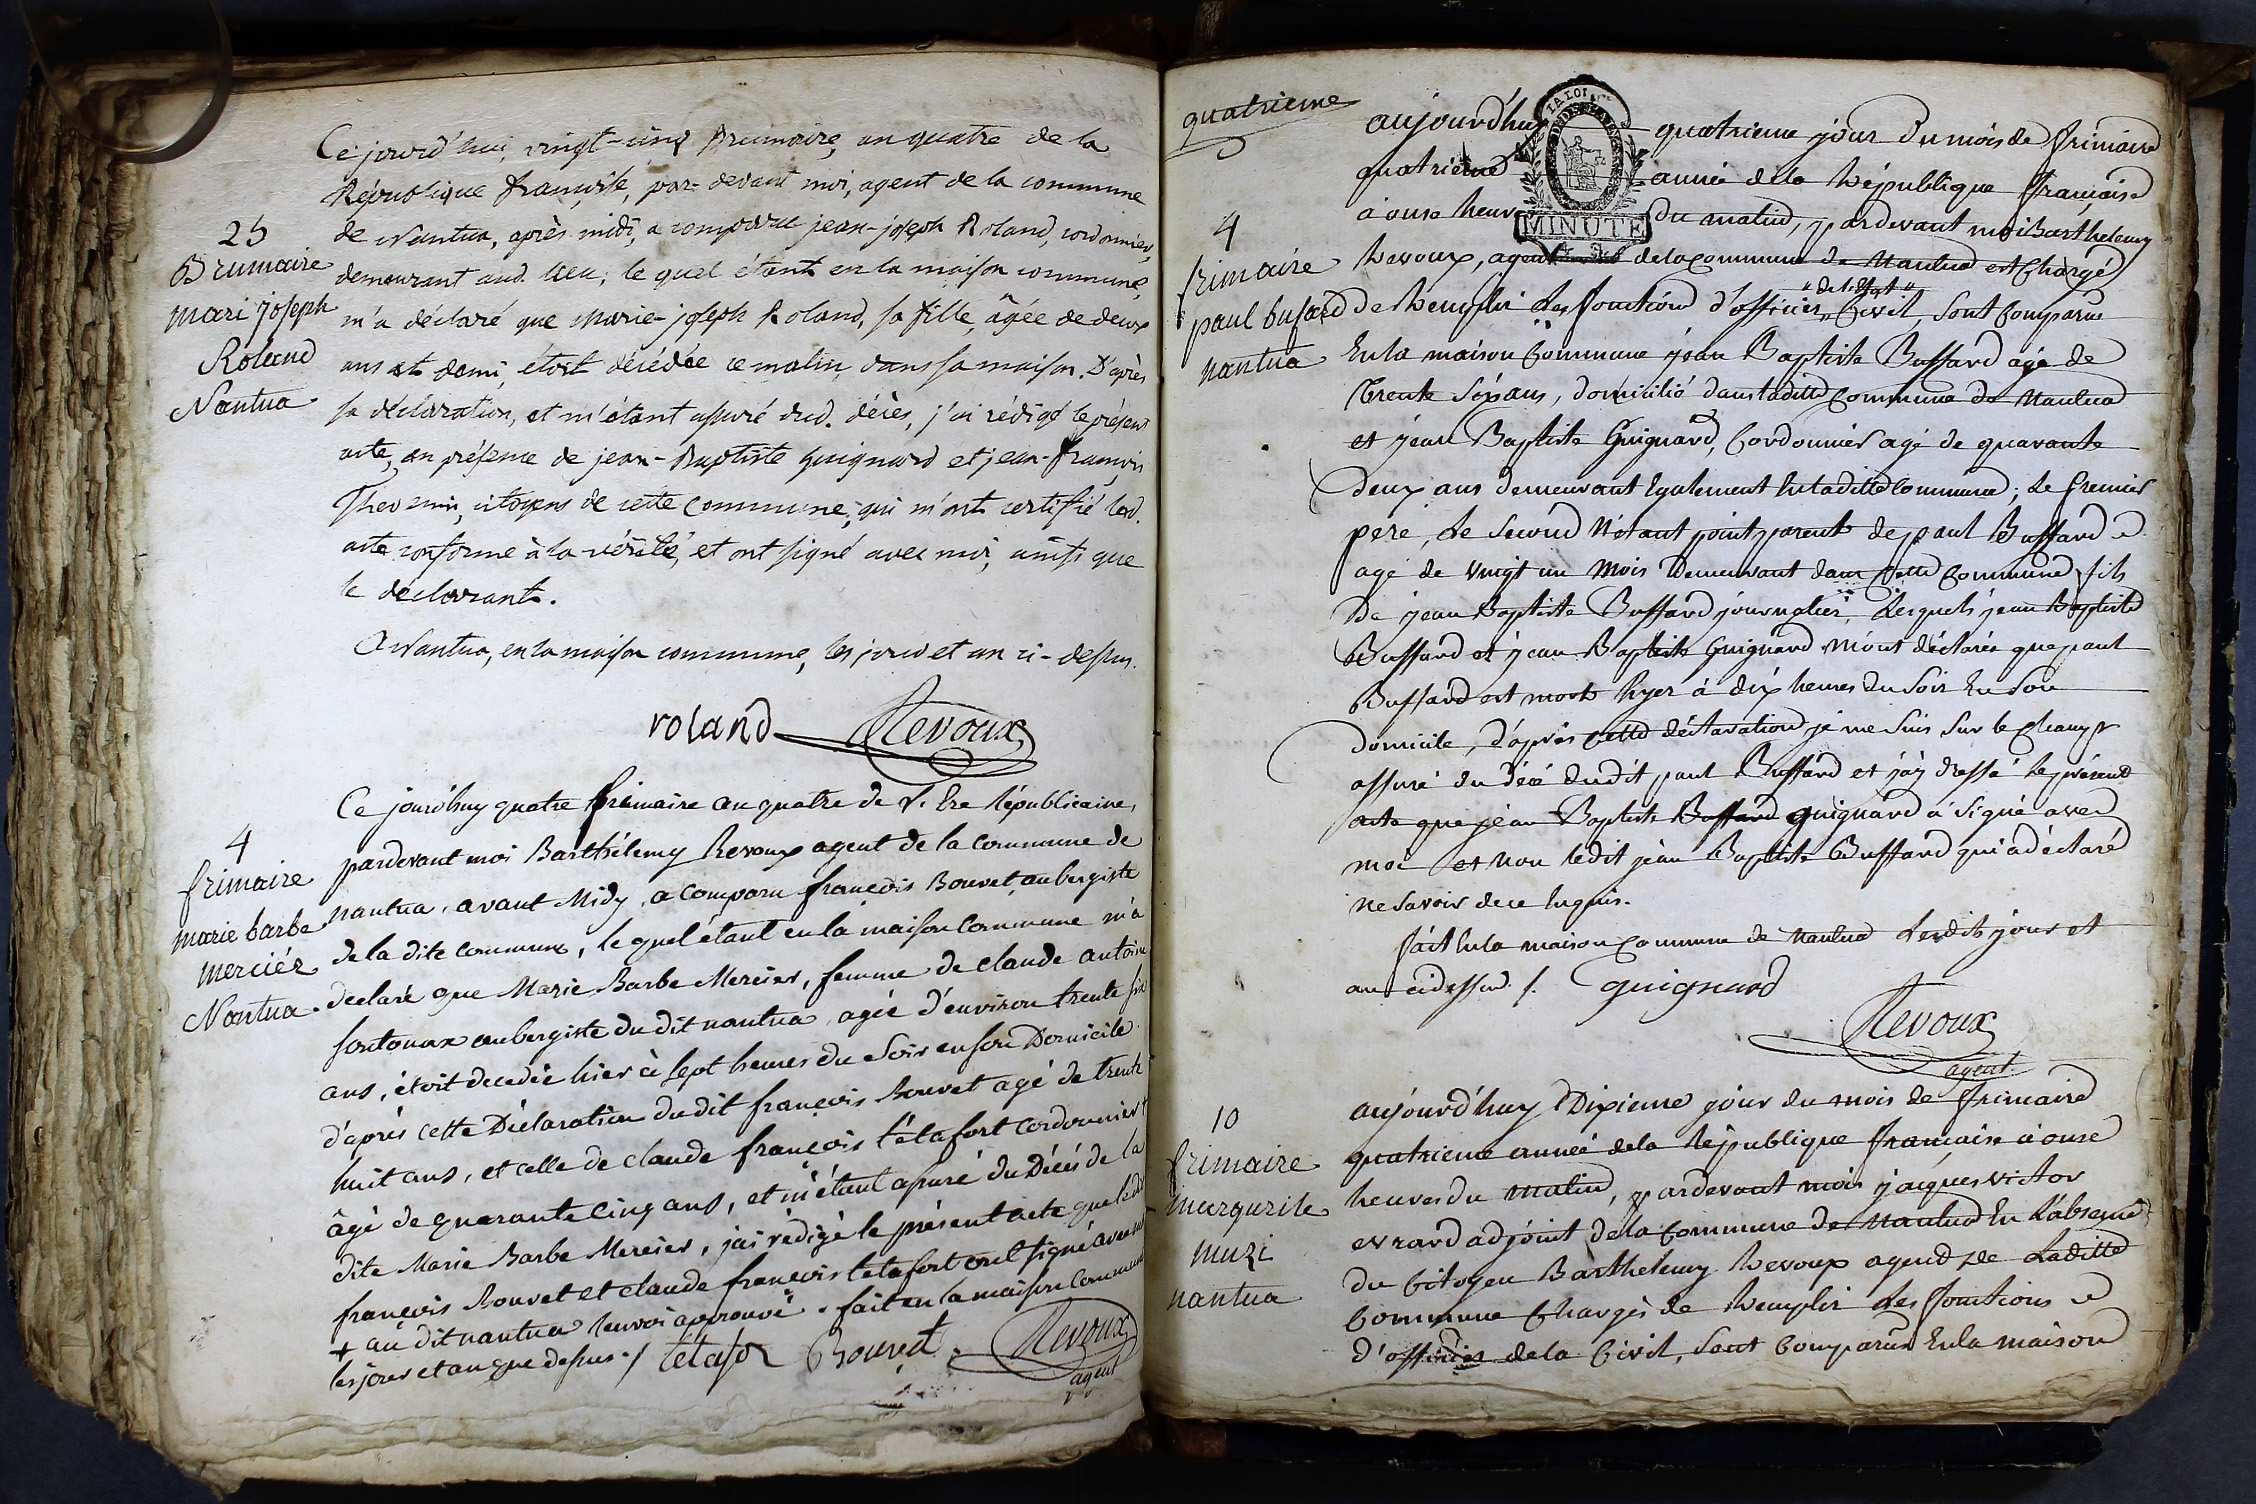 25
Brumaire
mari joseph
Roland
Nantua
Ce jourd'hui, vingt-cinq Brumaire, an quatre de la
République française, par-devant moi, agent de la commune
de Nantua, après midi, a comparu jean-joseph Roland, cordonnier,
demeurant aud. lieu; le quel étant en la maison commune,
m'a déclaré que Marie-joseph Roland, sa fille, âgée de deux
ans et demi, étoit décédée ce matin dans sa maison. D'après
sa déclaration, et m'étant assuré dud. décès, j'ai rédigé le présent
acte, en présence de jean-Baptiste guignard et jean-françois
Thevenin, citoyens de cette commune, qui m'ont certifié led.
acte conforme à la vérité, et ont signé avec moi, ainsi que
le déclarant.
A Nantua, en la maison commune, les jour et an ci-dessus.
roland Revoux
4
frimaire
marie barbe
merciér
Nantua
Ce jourd'huy quatre frimaire an quatre de l'Ere Républicaine,
pardevant moi Barthélemy Revoux agent de la Commune de
nantua, avant Midy, a comparu françois Bouvet, aubergiste
de la dite commune, le quel étant en la maison Commune m'a
declaré que Marie Barbe Mercier, femme de claude antoine
fontonax aubergiste du dit nantua, agée d'environ trente six
ans, étoit decedée hier à sept heures du Soir en son Domicile.
d'après cette Déclaration du dit françois Bouvet agé de trente
huit ans, et celle de claude françois tétafort cordonnier +
âgé de quarante cinq ans, et m'étant assuré du Décès de la
dite Marie Barbe Mercier, j'ai rédigé le présent acte que le dit
françois Bouvet et claude françois tétafort ont signé avec moi
+ au dit nantua renvoi approuvé. fait en la maison Commune
les jour et an que dessus ./ tétafor Bouvet Revoux
agent
quatrieme
LA LOI
MINUTE
4
frimaire
paul bufard
nantua
aujourd'huy quatrieme jour du mois de frimaire
quatrieme année de la République française
à onze heures du matin, pardevant moi Barthelemy
Revoux, agent de la commune de Nantua est Chargé
"de l'Etat"
de Remplir les fonction d'officier Civil, sont Comparu
En la maison Commune jean Baptiste Buffard agé de
Trente Sépans, domicilié dans ladite Commune de Nantua
et jean Baptiste Guignard, Cordonnier agé de quarante
deux ans demeurant Egalement En ladite Commune; Le premier
pere, Le Second N'étant point parent de paul Buffard
agé de vingt un Mois Demeurant dans Cette Commune fils
De jean Baptiste Buffard journalier, Lesquels jean Baptiste
Buffard et jean Baptiste Guignard m'ont déclarés que paul
Buffard est mort hyer à dix heures du Soir En Son
Domicile, d'après Cette déclaration je me Suis Sur le Champ
assuré du décé dudit paul Buffard et j'ay dressé Le présent
acte que jean Baptiste Buffard guignard à Signé avec
moi et Non ledit jean Baptiste Buffard qui à déclaré
ne Savoir de ce Enquis.
fait En la maison Commune de Nantua Lesdits jour et
an cidessus ./. guignard
Revoux
agent
10
frimaire
margurite
muzi
nantua
aujourd'huy Dixieme jour du mois de frimaire
quatrieme année de la République française à onze
heures du matin, pardevant moi jacques victor
evrard adjoint de la Commune de Nantua En L'absence
du Citoyen Barthelemy Revoux agend de Ladite
Commune Chargés de Remplir Les fonctions
d'officier de la Civil, Sont Comparus En la maison